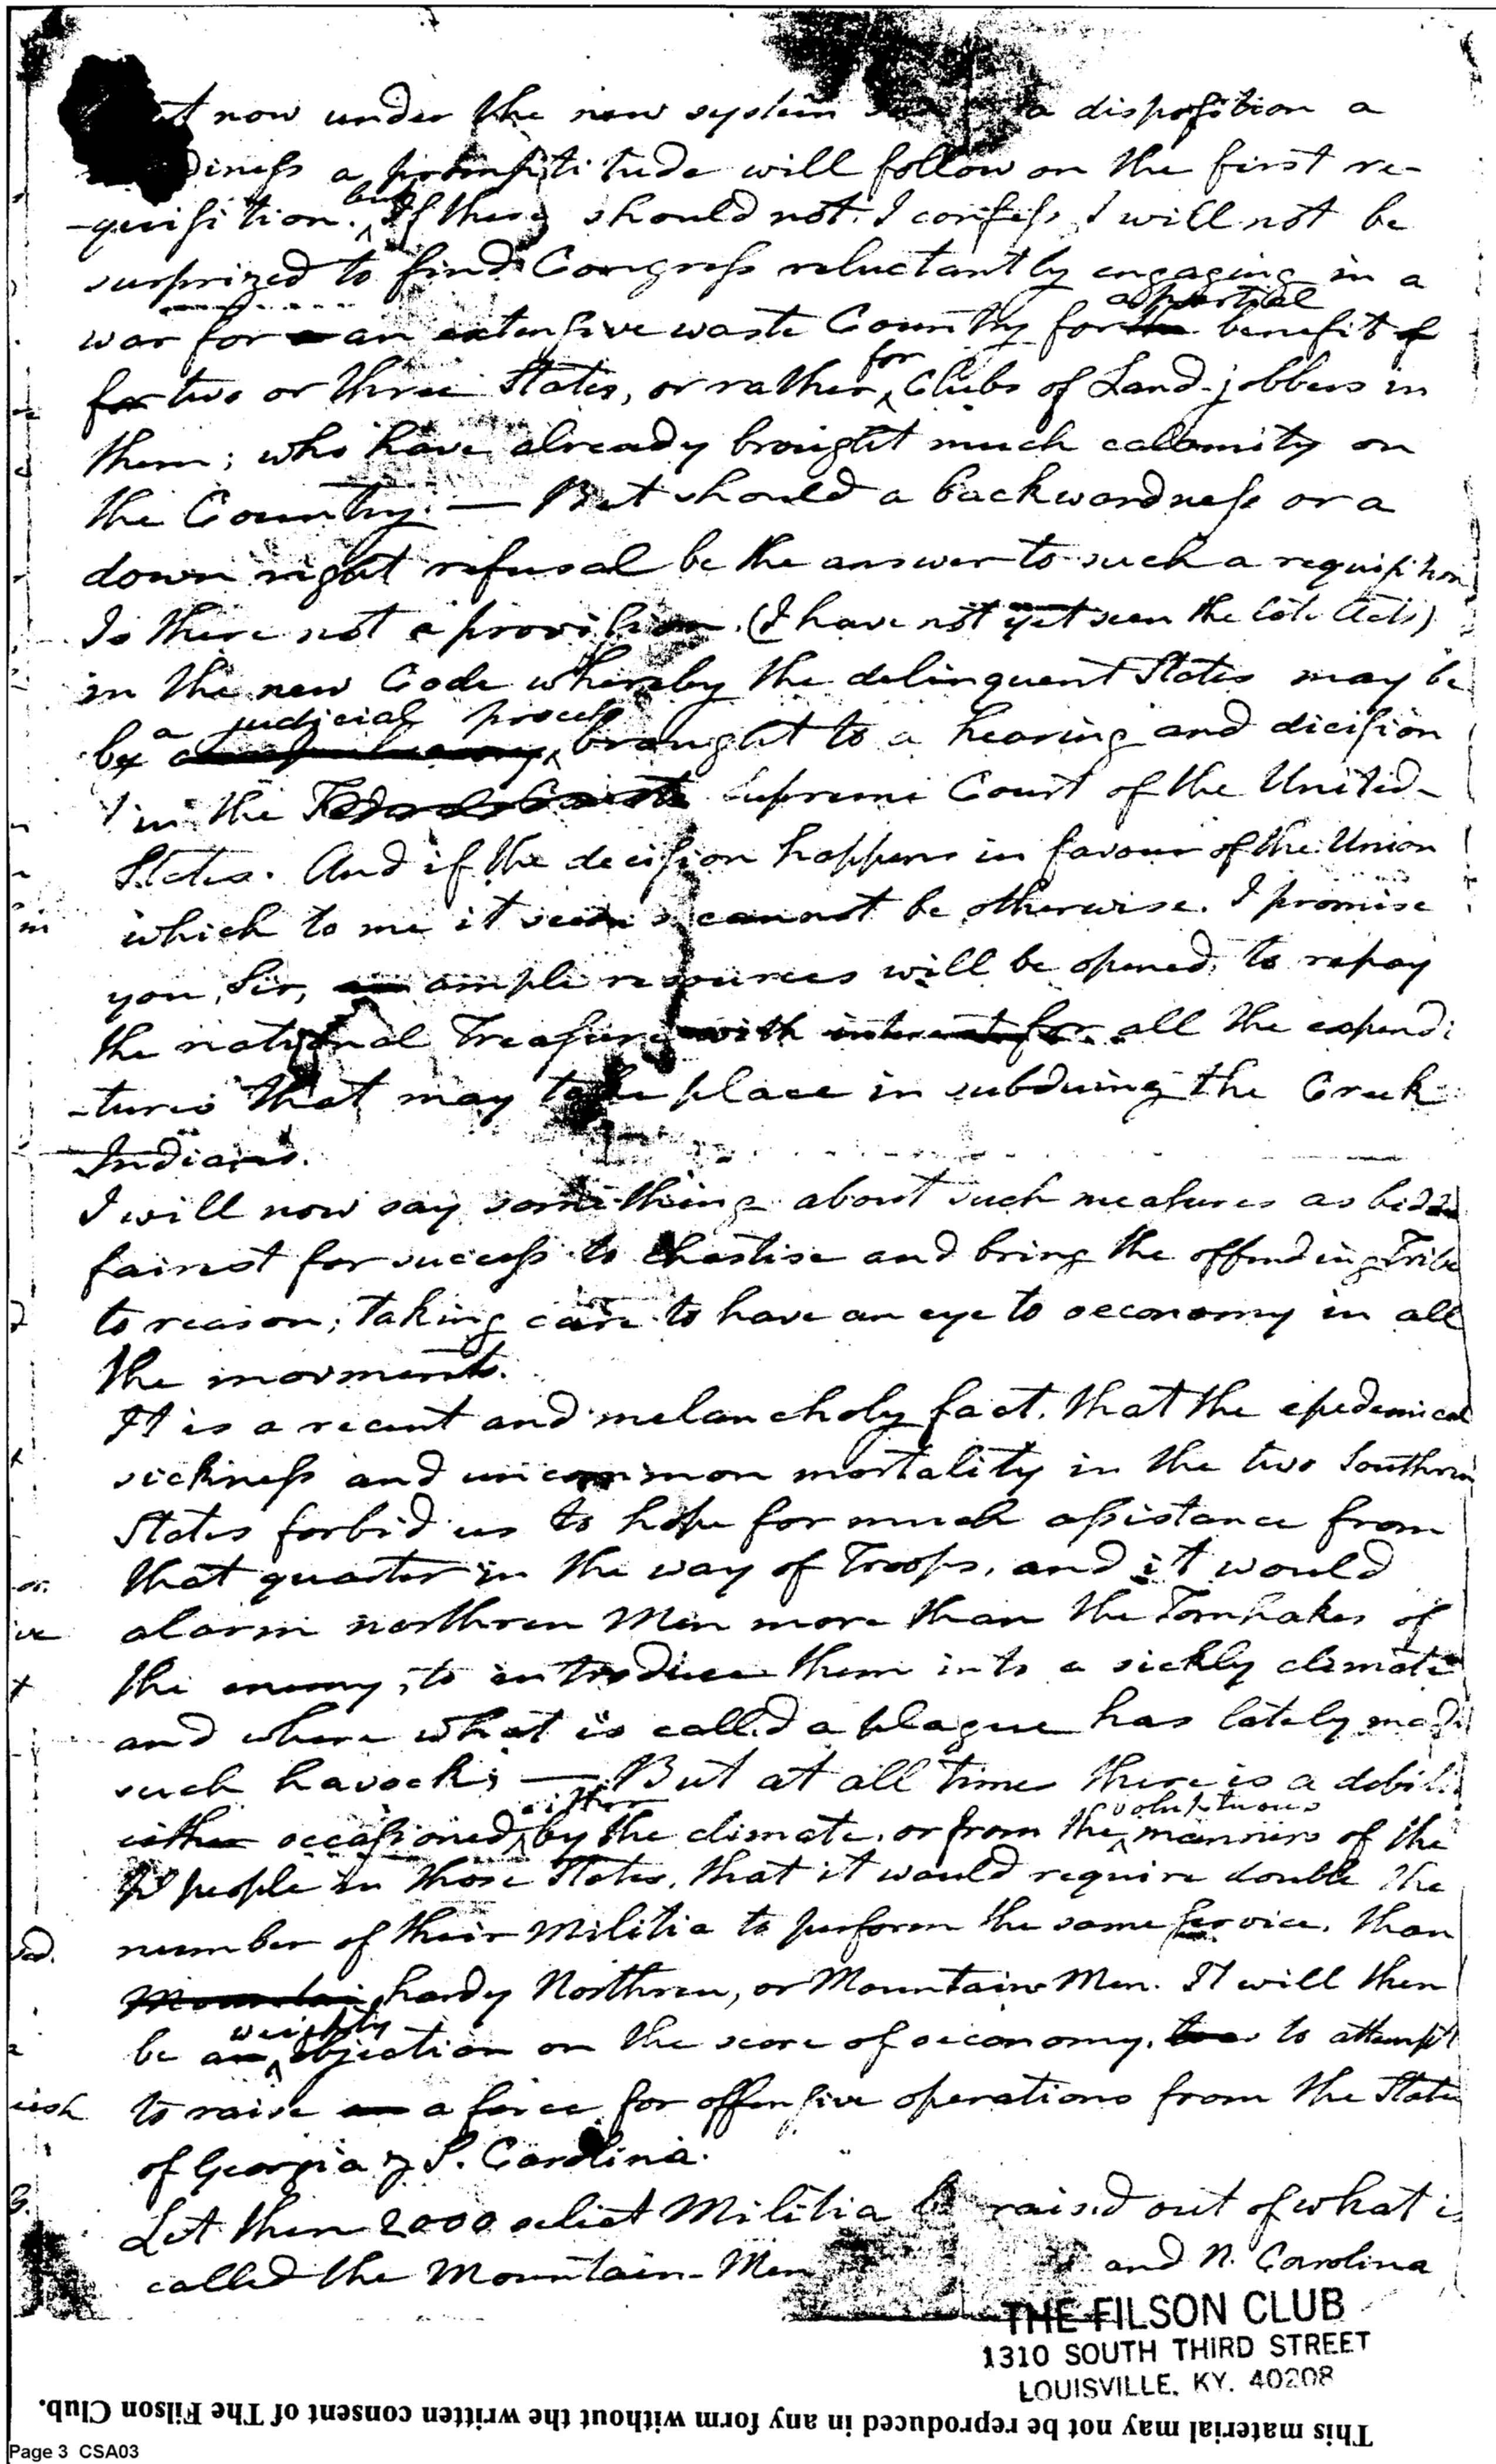 now under the new system a disposition a
diness a promptitude will follow on the first re-
-quisition. but If these should not. I confess I will not be
surprized to find Congress reluctantly engaging in a
war for a an extensive waste Country for the a partial benefit of
for two or three States, or rather for Clubs of Land-jobbers in
them; who have already brought much calamity on
the Country. — But should a backwardness or a
down right refusal be the answer to such a requisition
Is there not a provision. (I have not yet seen the late Acts)
in the new Code whereby the delinquent States may be
by a judicial process brought to a hearing and dicision
in the Supreme Court of the United-
States. And if the decision happens in favour of the Union
which to me it seems cannot be otherwise. I promise
you, Sir, ample resources will be opened, to repay
the national Treasury with interest for all the expendi
-tures that may take place in subduing the Creek
Indians.
I will now say something about such measures as bidds
fairest for success to chastise and bring the offending Tribe
to reason; taking care to have an eye to oeconomy in all
the movments.
It is a recent and melancholy fact. that the epedemical
sickness and uncommon mortality in the two Southren
States forbid us to hope for much assistance from
that quarter in the way of Troops, and it would
alarm northren Men more than the Tomhakes of
the enemy, to introduce them into a sickly climate
and where what is called a plague has lately made
such havock; — But at all times there is a debili
either occasioned either by the climate, or from the voluptuous manners of the
people in those States, that it would require double the
number of their Militia to perform the same service, than
Mountain hardy Northren, or Mountain Men. It will then
be an weighty objection on the score of oeconomy, to attempt
to raise an a force for offensive operations from the States
of Georgia & S. Carolina.
Let then 2000 select Militia be raised out of what is
called the Mountain-Men and N. Carolina
THE FILSON CLUB
1310 SOUTH THIRD STREET
LOUISVILLE, KY. 40208
This material may not be reproduced in any form without the written consent of The Filson Club.
Page 3 CSA03